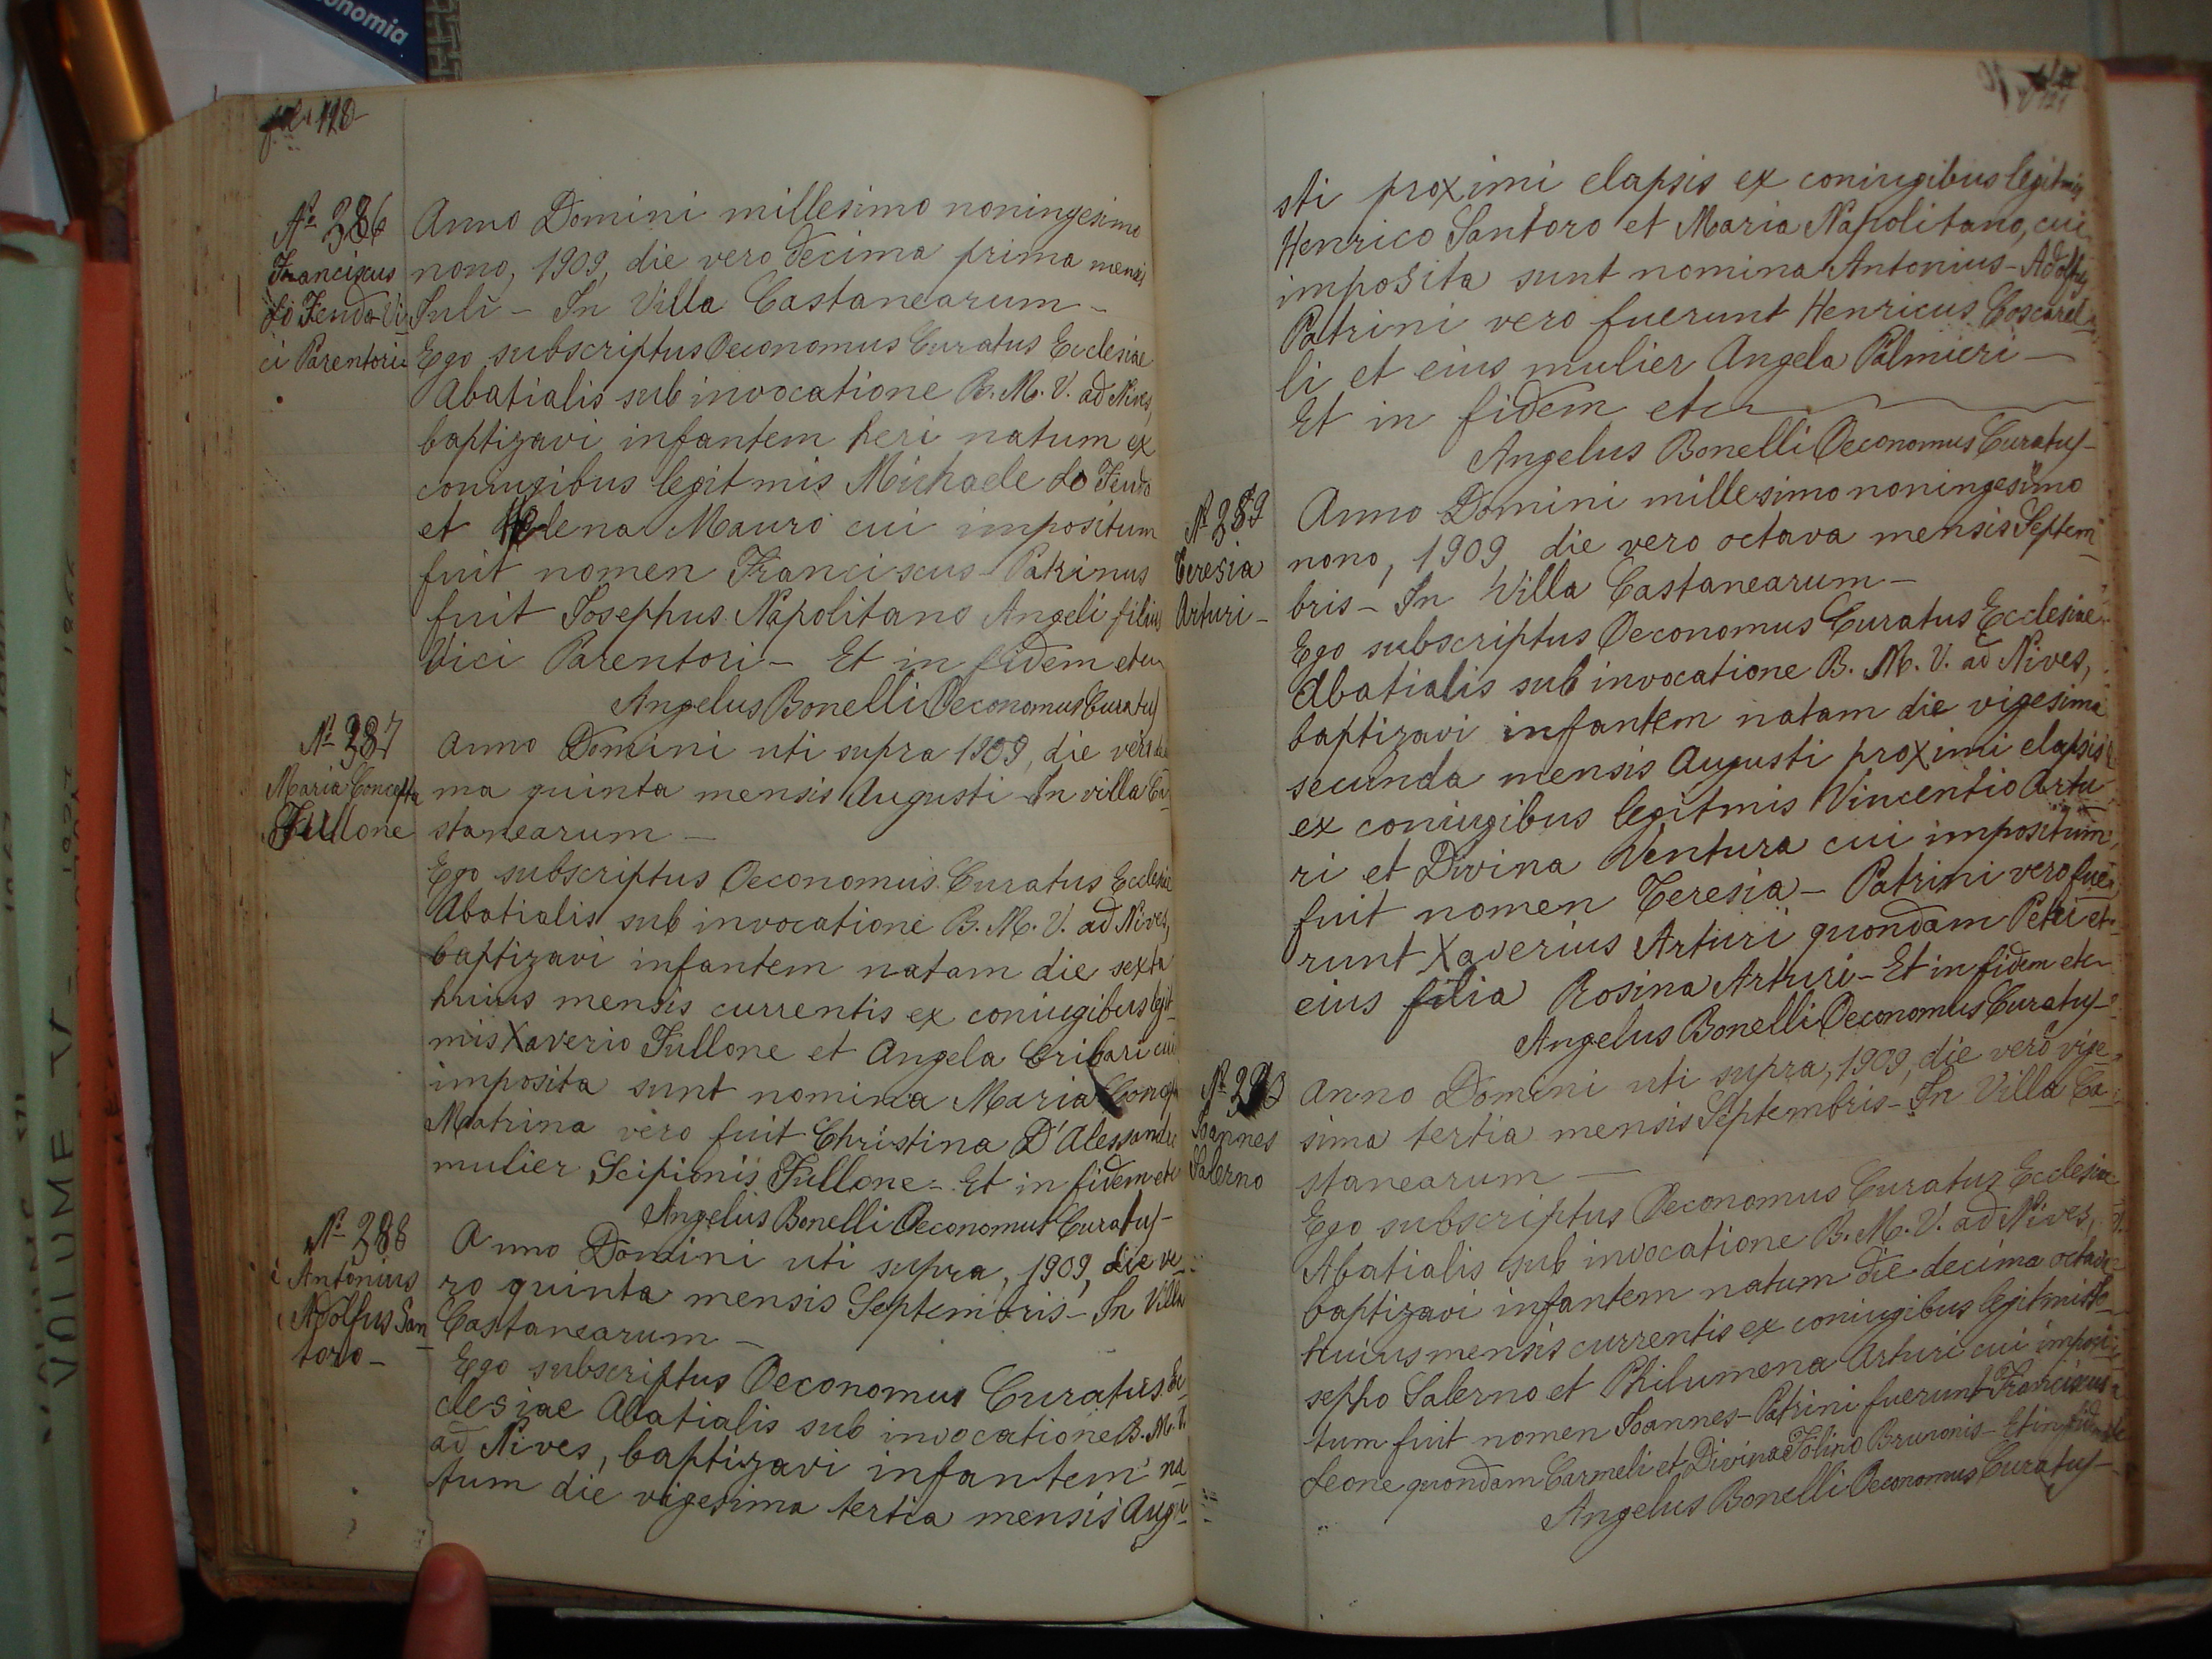 onomia
VOLUME IV
118
Nº 286
Franciscus
lo Feudo Vi
ci Parentori
Anno Domini millesimo noningesimo
nono, 1909, die vero decima prima mensis
Juli - In Villa Castanearum -
Ego subscriptus Oeconomus Curatus Ecclesiae
Abatialis sub invocatione B. M. V. ad Nives,
baptizavi infantem heri natum ex
coniugibus legitmis Michaele lo Feudo
et Helena Mauro cui impositum
fuit nomen Franciscus - Patrinus
fuit Josephus Napolitano Angeli filius
Vici Parentori - Et in fidem etc
Angelus Bonelli Oeconomus Curatus
Nº 287
Maria Concetta
Fullone
Anno Domini uti supra 1909, die vero deci
ma quinta mensis Augusti - In villa Ca
stanearum -
Ego subscriptus Oeconomus Curatus Ecclesiae
Abatialis sub invocatione B. M. V. ad Nives,
baptizavi infantem natam die sexta
huius mensis currentis ex coniugibus legit
mis Xaverio Fullone et Angela Cribari cui
imposita sunt nomina Maria
Matrina vero fuit Christina D'Alessandro
mulier Scipionis Fullone - Et in fidem etc
Angelus Bonelli Oeconomus Curatus -
Nº 288
Antonius
Adolfus San
toro -
Anno Domini uti supra, 1909, die ve
ro quinta mensis Septembris - In Villa
Castanearum -
Ego subscriptus Oeconomus Curatus Ec
clesiae Abatialis sub invocatione B. M. V.
ad Nives, baptizavi infantem na
tum die vigesima tertia mensis Augu
121
sti proximi elapsis ex coniugibus legitmis
Henrico Santoro et Maria Napolitano, cui
imposita sunt nomina Antonius - Adolfus
Patrini vero fuerunt Henricus Coscarel
li et eius mulier Angela Palmieri -
Et in fidem etc
Angelus Bonelli Oeconomus Curatus -
Nº 289
Teresia
Arturi -
Anno Domini millesimo noningesimo
nono, 1909 die vero octava mensis Septem
bris - In Villa Castanearum -
Ego subscriptus Oeconomus Curatus Ecclesiae
Abatialis sub invocatione B. M. V. ad Nives,
baptizavi infantem natam die vigesima
secunda mensis Augusti proximi elapsis
ex coniugibus legitmis Vincentio Artu
ri et Divina Ventura cui impositum
fuit nomen Teresia - Patrini vero fue
runt Xaverius Arturi quondam Petri et
eius filia Rosina Arturi - Et in fidem etc
Angelus Bonelli Oeconomus Curatus -
Nº 290
Joannes
Salerno
Anno Domini uti supra, 1909, die vero vige
sima tertia mensis Septembris - In Villa Ca
stanearum -
Ego subscriptus Oeconomus Curatus Ecclesiae
Abatialis sub invocatione B. M. V. ad Nives,
baptizavi infantem natum die decima octava
huius mensis currentis ex coniugibus legitmis Jo
sepho Salerno et Philumena Arturi cui imposi
tum fuit nomen Joannes - Patrini fuerunt Franciscus
Leone quondam Carmeli et Divina Folino Brunonis - Et in fidem etc
Angelus Bonelli Oeconomus Curatus -